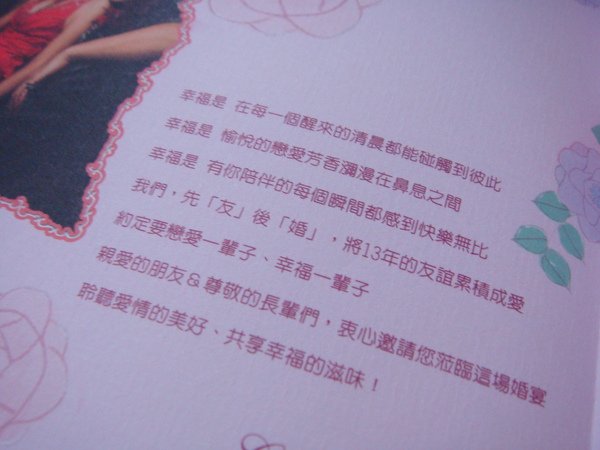 幸福是 在每一個醒來的清晨都能碰觸到彼此
幸福是 愉悅的戀愛芳香瀰漫在鼻息之間
幸福是 有你陪伴的每個瞬間都感到快樂無比
我們，先「友」後「婚」，將13年的友誼累積成愛
約定要戀愛一輩子、幸福一輩子
親愛的朋友＆尊敬的長輩們，衷心邀請您蒞臨這場婚宴
聆聽愛情的美好、共享幸福的滋味！